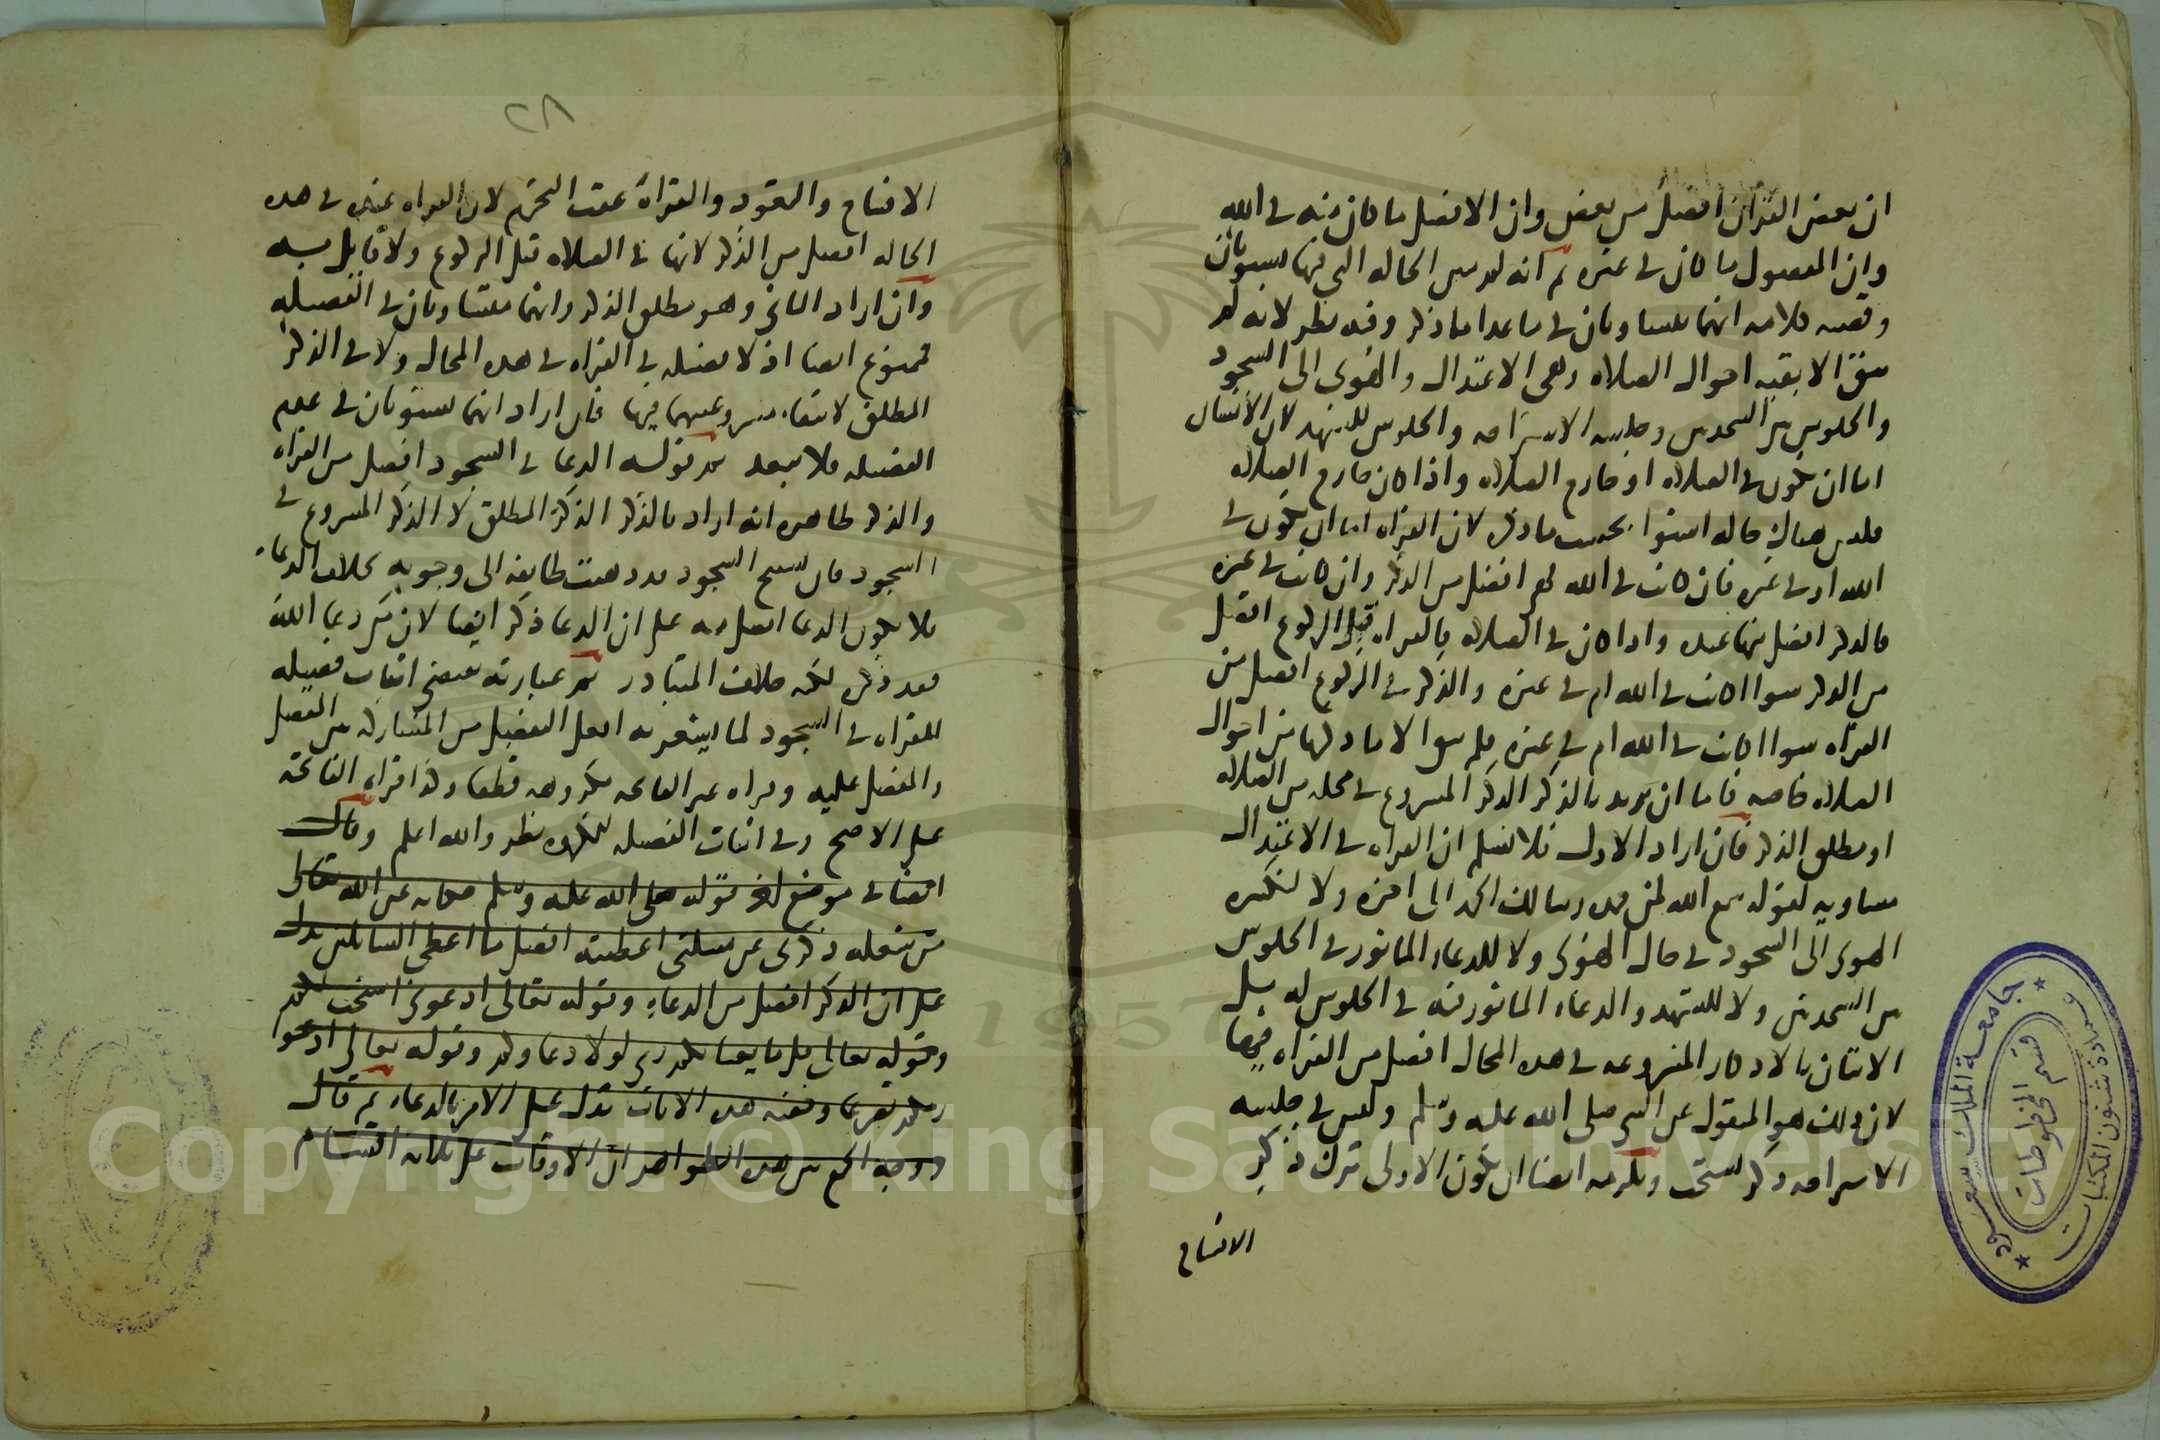 ان بعض القران افضل من بعض وان الافضل ما كان منه في الله
وان المفضول ما كان في غيره ثم انه لم يبين الحاله التي فيها يستويان
وقضيه كلامه انهما يتساويان في ما عدا ما ذكر وفيه نظر لانه لم
يبق الا بقيه احوال الصلاه وهي الاعتدال والهوى الى السجود
والجلوس بين السجدتين وجلسه الاستراحه والجلوس للتشهد لان الانسان
اما ان يكون في الصلاه او خارج الصلاه واذا كان خارج الصلاه
فليس هناك حاله استوا بحسب ما ذكر لان القراه اما ان تكون في
الله او في غيره فان كانت في الله فهي افضل من الذكر وان كانت في غيره
فالذكر افضل منها عنده واذا كان في الصلاه فالقراه قبل الركوع افضل
من الذكر سوا كانت في الله ام في غيره والذكر في الركوع افضل من
القراه سوا كانت في الله ام في غيره فلم يبق الا ما ذكرنا من احوال
الصلاه خاصه فاما ان يريد بالذكر الذكر المشروع في محله من الصلاه
او مطلق الذكر فان اراد الاول فلا نسلم ان القراه في الاعتدال
مساويه لقوله سمع الله لمن حمده ربنا لك الحمد الى اخره ولا لتكبيره
الهوى الى السجود في حال الهوى ولا للدعاء الماثور في الجلوس
بين السجدتين ولا للتشهد والدعاء الماثور فيه في الجلوس له بل
الاتيان بالاذكار المشروعه في هذه المحال افضل من القراه فيها
لان ذلك هو المنقول عن النبي صلى الله عليه وسلم وليس في جلسه
الاستراحه ذكر يستحب ويلزمه ايضا ان يكون الاولى ترك ذكر
الافتتاح
٢٨
الافتتاح والتعوذ والقراة عقب التحرم لان القراه عنده في هذه
الحاله افضل من الذكر لانها في الصلاه قبل الركوع ولا قايل به
وان اراد الثاني وهو مطلق الذكر وانهما متساويان في الفضيله
فممنوع ايضا اذ لا فضيله في القراه في هذه المحال ولا في الذكر
المطلق لانتفاء مشروعيتهما فيها فان اراد انهما يستويان في عدم
الفضيله فلا يبعد ثم قوله الدعا في السجود افضل من القراه
والذكر ظاهره انه اراد بالذكر الذكر المطلق لا الذكر المشروع في
السجود فان تسبيح السجود قد ذهبت طايفه الى وجوبه بخلاف الدعاء
فلا يكون الدعا افضل منه على ان الدعا ذكر ايضا لان من دعا الله
فقد ذكره لكنه خلاف المتبادر ثم عبارته تقتضي اثبات فضيله
للقراه في السجود لما يشعر به افعل التفضيل من المشاركه بين المفضل
والمفضل عليه وقراه غير الفاتحه مكروهه قطعا وكذا قراه الفاتحه
على الاصح وفي اثبات الفضيله للمكروه نظر والله اعلم وقال
ايضا في موضع اخر قوله صلى الله عليه وسلم حكايه عن الله تعالى
من شغله ذكرى عن مسلتي اعطيته افضل ما اعطي السايلين يدل
على ان الذكر افضل من الدعاء وقوله تعالى ادعوني استجب لكم
وقوله تعالى قل ما يعبا بكم ربي لولا دعاوكم وقوله تعالى ادعوا
ربكم تضرعا وخفيه هذه الايات تدل على الامر بالدعاء ثم قال
ووجه الجمع بين هذه الظواهر ان الاوقات على ثلاثه اقسام
جامعة الملك سعود
عمادة شئون المكتبات
قسم المخطوطات
1957
Copyright © King Saud University